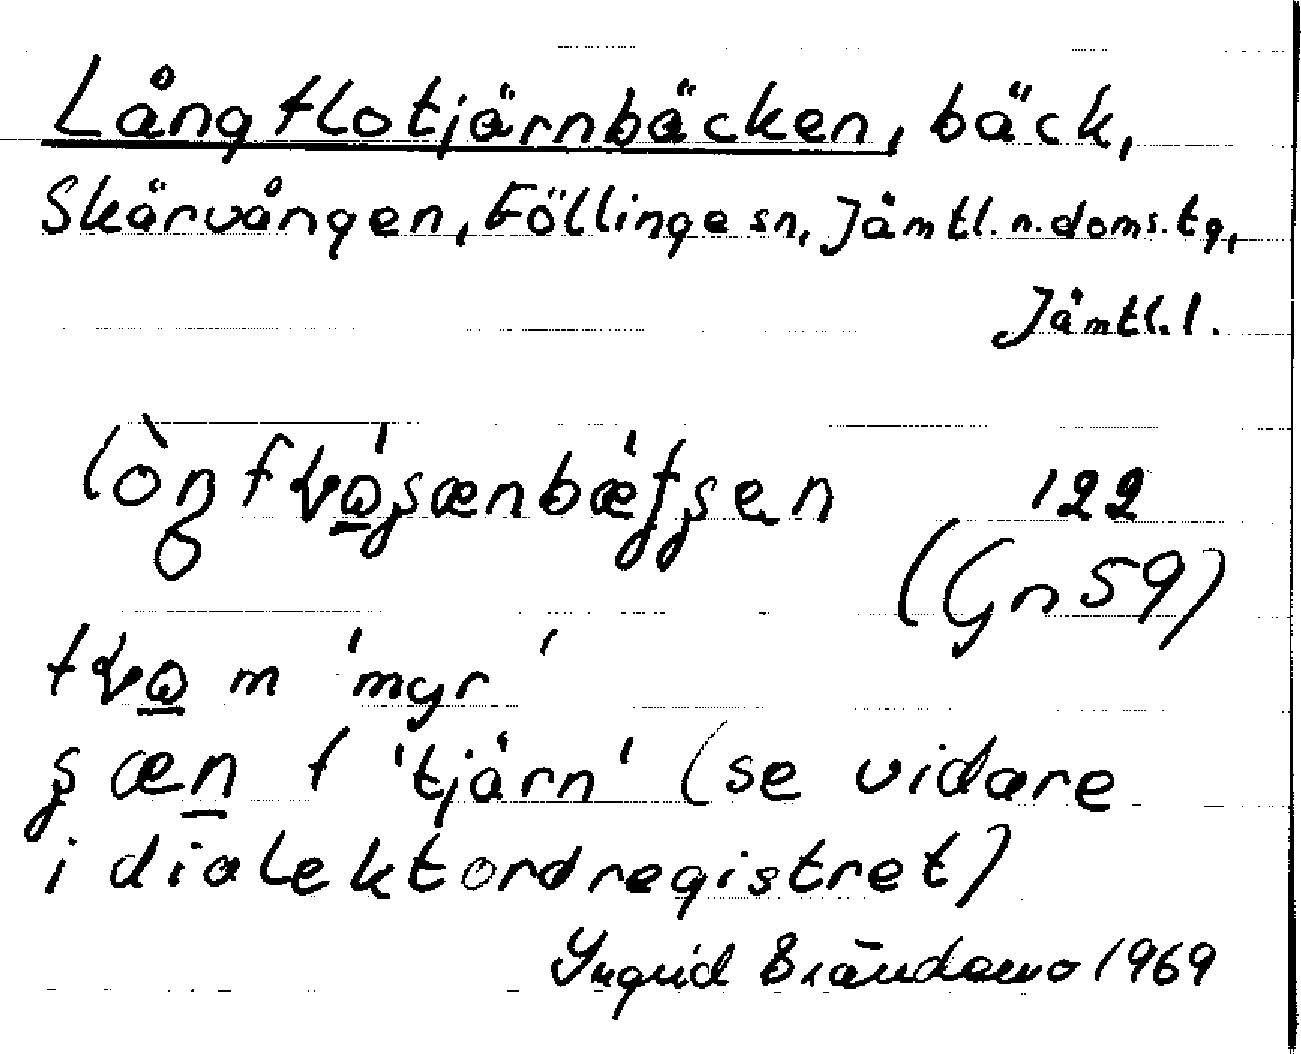 Långflotjärnbäcken, bäck,
Skärvången, Föllinge sn, Jämtl. n. doms. tg,
Jämtl. l.
122
(Gn 59)
m 'myr'
f 'tjärn' (se vidare
i dialektordregistret)
Ingrid Brändamo 1969